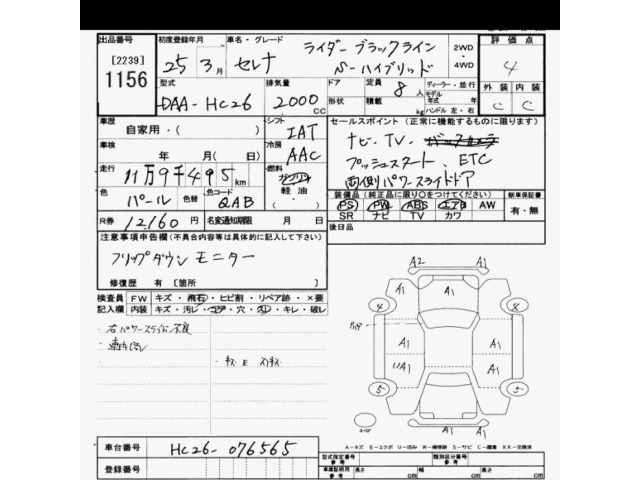 出品番号
[2239]
1156
初度登録年月
25年 3月
車名・グレード
セレナ
ライダー ブラックライン
S-ハイブリッド
2WD
4WD
評価点
4
外装 内装
C C
型式
DAA-HC26
排気量
2000 CC
ドア
形状
定員 8人
積載 kg
ディーラー・並行
モデル
年式 年
ハンドル 左・右
車歴
自家用・( )
シフト
IAT
冷房
AAC
燃料
ガソリン
軽油
( )
車検
年 月(日)
走行
11万9千495km
色
パール
色替
色コード
QAB
R券
12,160円
名変通知期限 月 日
セールスポイント(正常に機能するものに限ります)
ナビ・TV・バックカメラ
プッシュスタート、ETC
両側パワースライドドア
装備品(純正品に限り○をつけてください)
PS PW ABS エアB AW
SR ナビ TV カワ
新車保証書
有・無
後日品
注意事項申告欄(不具合内容等は具体的に記入して下さい)
フリップダウンモニター
修復歴 有[箇所 ]
検査員
記入欄
FW キズ・飛石・ヒビ割・リペア跡・×要
内装 キズ・汚レ・コゲ・穴・スレ・キレ・破レ
右パワースライド不良
キズ E スリキズ
A2
A1
A1
4
4
8
A1
A1
A1
A1
UA1
A1
5
5
A1
A1
スペア
A-キズ E-エクボ U-凹み W-補修跡 S-サビ C-腐食 XX-交換済
車台番号
HC26-076565
登録番号
型式指定番号
参考
類別区分番号
参考
車庫証明用
参考
長さ cm
幅 cm
高さ cm